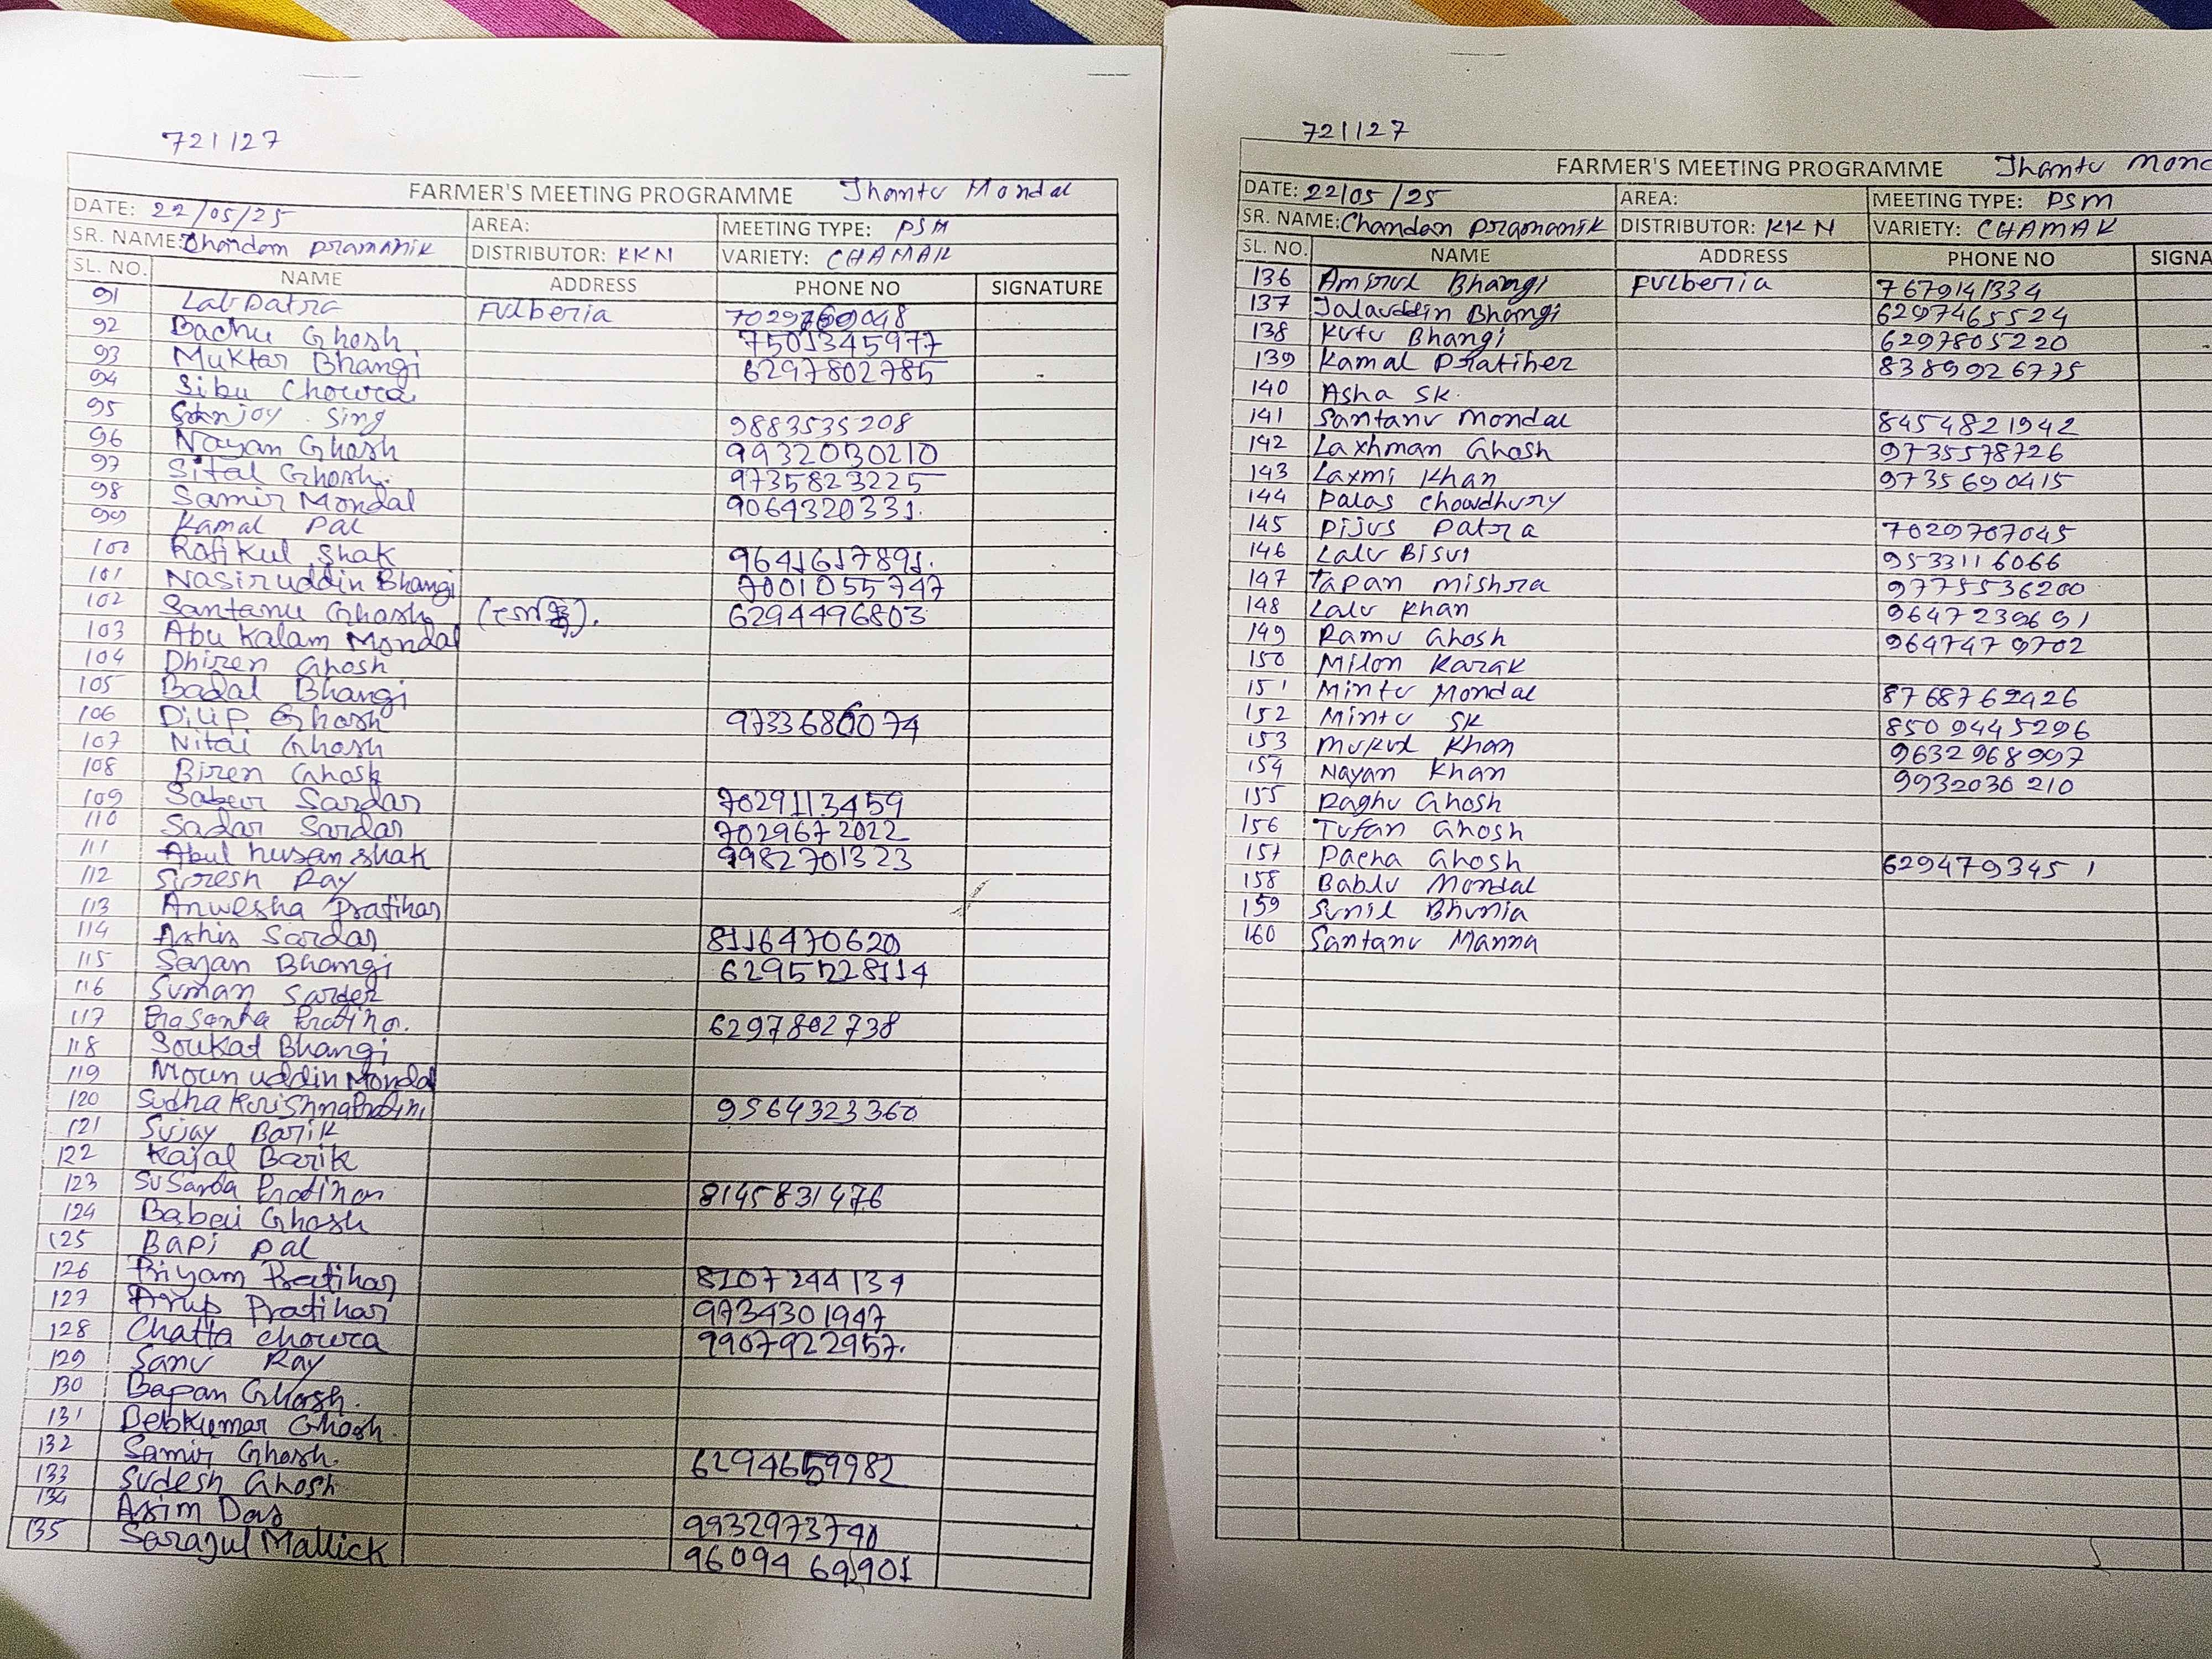 721127
FARMER'S MEETING PROGRAMME Jhantu Mondal
DATE: 22/05/25 AREA: MEETING TYPE: PSM
SR. NAME: Chandan Pramanik DISTRIBUTOR: KKN VARIETY: CHAMAK
SL. NO. NAME ADDRESS PHONE NO SIGNATURE
91 Lab Patra Fulberia
92 Bachu Ghosh 7501345977
93 Muktar Bhangi 6297802785
94 Sibu Chowra
95 Sanjoy Sing 9883535208
96 Nayan Ghosh 9932030210
97 Sital Ghosh. 9735823225
98 Samir Mondal 9064320331.
99 Kamal Pal
100 Rafikul Shak 9641617891.
101 Nasiruddin Bhangi 7001055747
102 Santanu Ghosh 6294496803
103 Abu Kalam Mondal
104 Dhiren Ghosh
105 Badal Bhangi
106 Dilip Ghosh 9733686074
107 Nitai Ghosh
108 Biren Ghosh
109 Sabur Sardar 7029113459
110 Sadar Sardar 7029672022
111 Abul husan shak 9982701323
112 Suresh Ray
113 Anwesha Pratihar
114 Ashis Sardar 8116470620
115 Sayan Bhangi 6295728114
116 Suman Sarder
117 Prasanta 6297802738
118 Soukat Bhangi
119 Mounuddin Mondal
120 Sudha Krishna 9564323360
121 Sujay Barik
122 Kajal Barik
123 Pratihar 8145831476
124 Ghosh
125 Bapi pal
126 Priyam Pratihar 8207244134
127 Arup Pratihar 9734301947
128 Chatta chowra 9907922957.
129 Sanu Ray
130 Bapan Ghosh.
131 Debkumar Ghosh.
132 Samir Ghosh. 6294659982
133 Sudesh Ghosh
134 Asim Das 9932973790
135 Sarajul Mallick 9609469901
721127
FARMER'S MEETING PROGRAMME Jhantu Mond
DATE: 22/05/25 AREA: MEETING TYPE: PSM
SR. NAME: Chandan Pramanik DISTRIBUTOR: KKN VARIETY: CHAMAK
SL. NO. NAME ADDRESS PHONE NO SIGNA
136 Amirul Bhangi Fulberia 7679141334
137 Jalauddin Bhangi 6297465524
138 Kutu Bhangi 6297805220
139 Kamal Pratiher 8389926775
140 Asha SK.
141 Santanu Mondal 8454821942
142 Laxhman Ghosh 9735578726
143 Laxmi Khan 9735690415
144 Palas Chowdhury
145 Pijus Patra 7029707045
146 Lalu Bisui 9533116066
147 Tapan Mishra 9775536200
148 Lalu Khan 9647239691
149 Ramu Ghosh 9647479702
150 Milon Karak
151 Mintu Mondal 8768762426
152 Mintu SK 8509445296
153 Mukul Khan 9632968997
154 Nayan Khan 9932030210
155 Raghu Ghosh
156 Tufan Ghosh
157 Pacha Ghosh 6294793451
158 Bablu Mondal
159 Sunil Bhunia
160 Santanu Manna